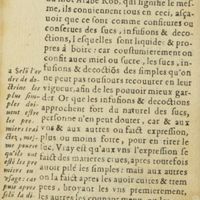 mot Arabe Rob, qui signifie le mes-
me, ils conuiennent tous en ceci, asça-
uoir que ce sont comme confitures ou
conserues des sucs, infusions & deco-
ctions, lesquelles sont liquides & pro-
pres à boire: car coustumierement on
confit auec miel ou sucre, les sucs, in-
fusions & decoctiõs des simples qu'on
ne peut pas tousiours recouurer en leur
vigueur, afin de les pouuoir mieux gar-
der. Or que les infusions & decoctions
approchent fort du naturel des sucs,
personne n'en peut douter, car & aux
vns & aux autres on fait expression,
plus ou moins forte, pour en tirer le
suc. Vray est qu'aux vns l'expression se
fait des matieres crues, apres toutefois
auoir pilé les simples: mais aux autres
on la fait apres auoir
pres, broyant les vns premierement,
a Selõ l'or
dre de do-
ctrine les
plus sim-
ples doi-
uent estre
les pre-
miers trai
ctez, mes-
me pource
qu'ils ont
esté les pre
miers en
vsage: car
puis apres